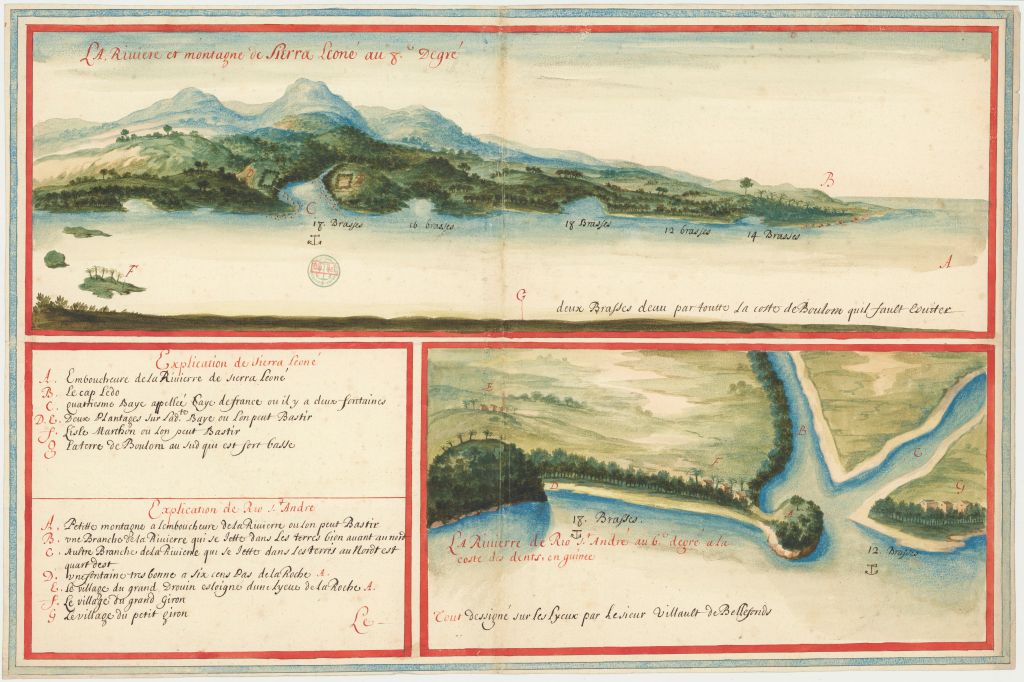 LA Riviere et montagne de Sierra Leoné au 8.e Degré
B
D
E
C
18. Brasses
16 brasses
18 Brasses
12 brasses
14 Brasses
F
A
G
deux Brasses deau par toutte La coste de Boulom quil fault Eviter
Explication de Sierra Leoné
A. Emboucheure de La Rivierre de Sierra Leoné
B. Le cap Ledo
C. quatriesme Baye apellée Baye de france ou il y a deux fontaines
D. E. Deux Plantages sur Lad.te Baye ou Lon peut Bastir
F. Lisle Marchon ou Lon peut Bastir
G Laterre de Boulom au Sud qui est fort basse
Explication de Rio S.t André
A. Petitte montagne a lemboucheure de La Rivierre ou Lon peut Bastir
B. vne Branche de la Rivierre qui se Jette dans Les terres bien avant au nort
C. Autre Branche de la Rivierre qui se Jette dans les terres au Nord est
quart dest
D. vne fontaine tres bonne a six cens Pas de La Roche A.
E. Le village du grand Drouin esloigné dune Lyeue de La Roche A.
F. Le village du grand Giron
G Le village du petit giron
Le
E
B
C
F
G
D
A
18. Brasses.
12. Brasses
LA Rivierre de Rio S.t André au 6.e degré a la
coste des dents, en guinée
Tout dessigné sur les Lyeux par Le sieur Villault de Bellefonds